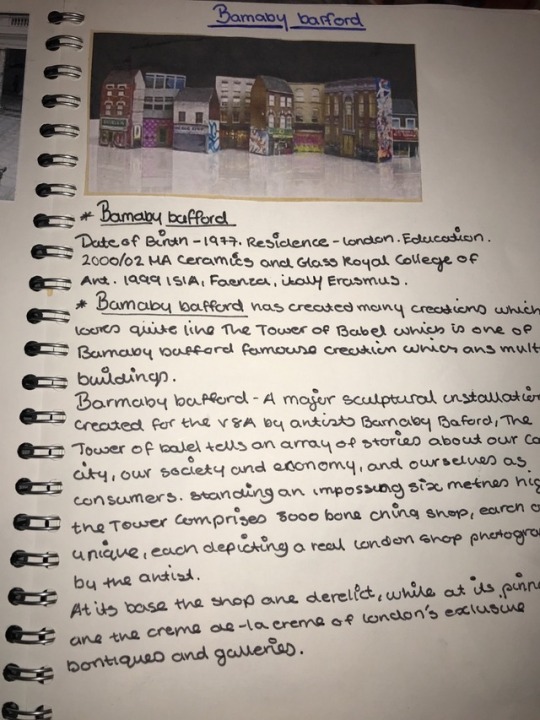 Barnaby barford
* Barnaby bafford
Date of Birth - 1977. Residence - London. Education.
2000/02 MA Ceramics and Glass Royal College of
Art. 1999 ISIA, Faenza, italy Erasmus.
* Barnaby bafford has created many creations which
looks quite line The Tower of Babel which is one of
Barnaby bafford famouse creation which ans mult
buildings.
Barmaby bafford - A major sculptural installation
created for the V&A by antists Barnaby Baford, The
Tower of balel tells an array of stories about our Ca
city, our society and economy, and ourselves as
consumers. standing an impossing six metres hig
the Tower comprises 3000 bone china shop, each o
unique, each depicting a real London shop photogra
by the antist.
At its base the shop are derelict, while at its pinn
are the creme de-la creme of London's exclusive
bontiques and galleries.